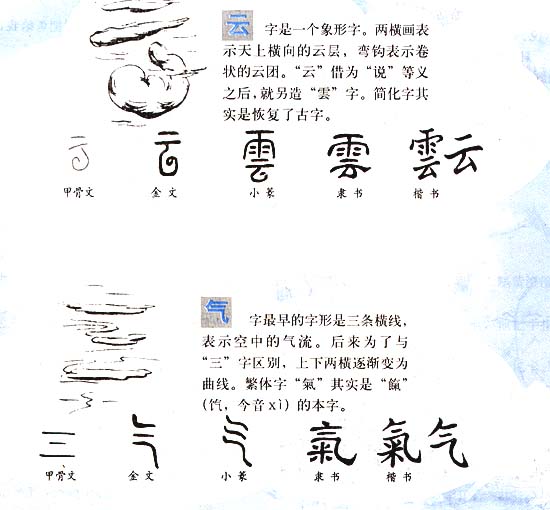 云 字是一个象形字。两横画表
示天上横向的云层，弯钩表示卷
状的云团。“云”借为“说”等义
之后，就另造“雲”字。简化字其
实是恢复了古字。
云 云 雲 雲 雲云
甲骨文 金文 小篆 隶书 楷书
气 字最早的字形是三条横线，
表示空中的气流。后来为了与
“三”字区别，上下两横逐渐变为
曲线。繁体字“氣”其实是“餼”
（饩，今音xì）的本字。
三 气 气 氣 氣气
甲骨文 金文 小篆 隶书 楷书